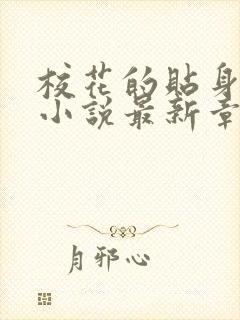 校花的貼身
小說最新章
月邪心